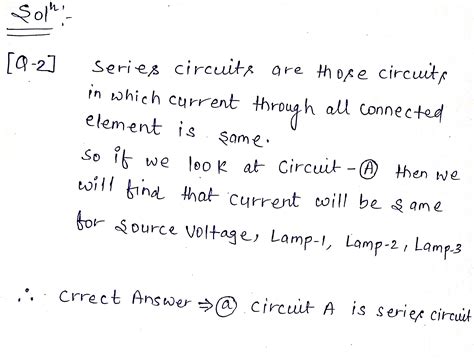 Solⁿ:-
[Q-2] Series circuits are those circuits
in which current through all connected
element is same.
So if we look at Circuit-Ⓐ then we
will find that current will be same
for source voltage, Lamp-1, Lamp-2, Lamp-3
∴ crrect Answer ⇒ ⓐ circuit A is series circuit